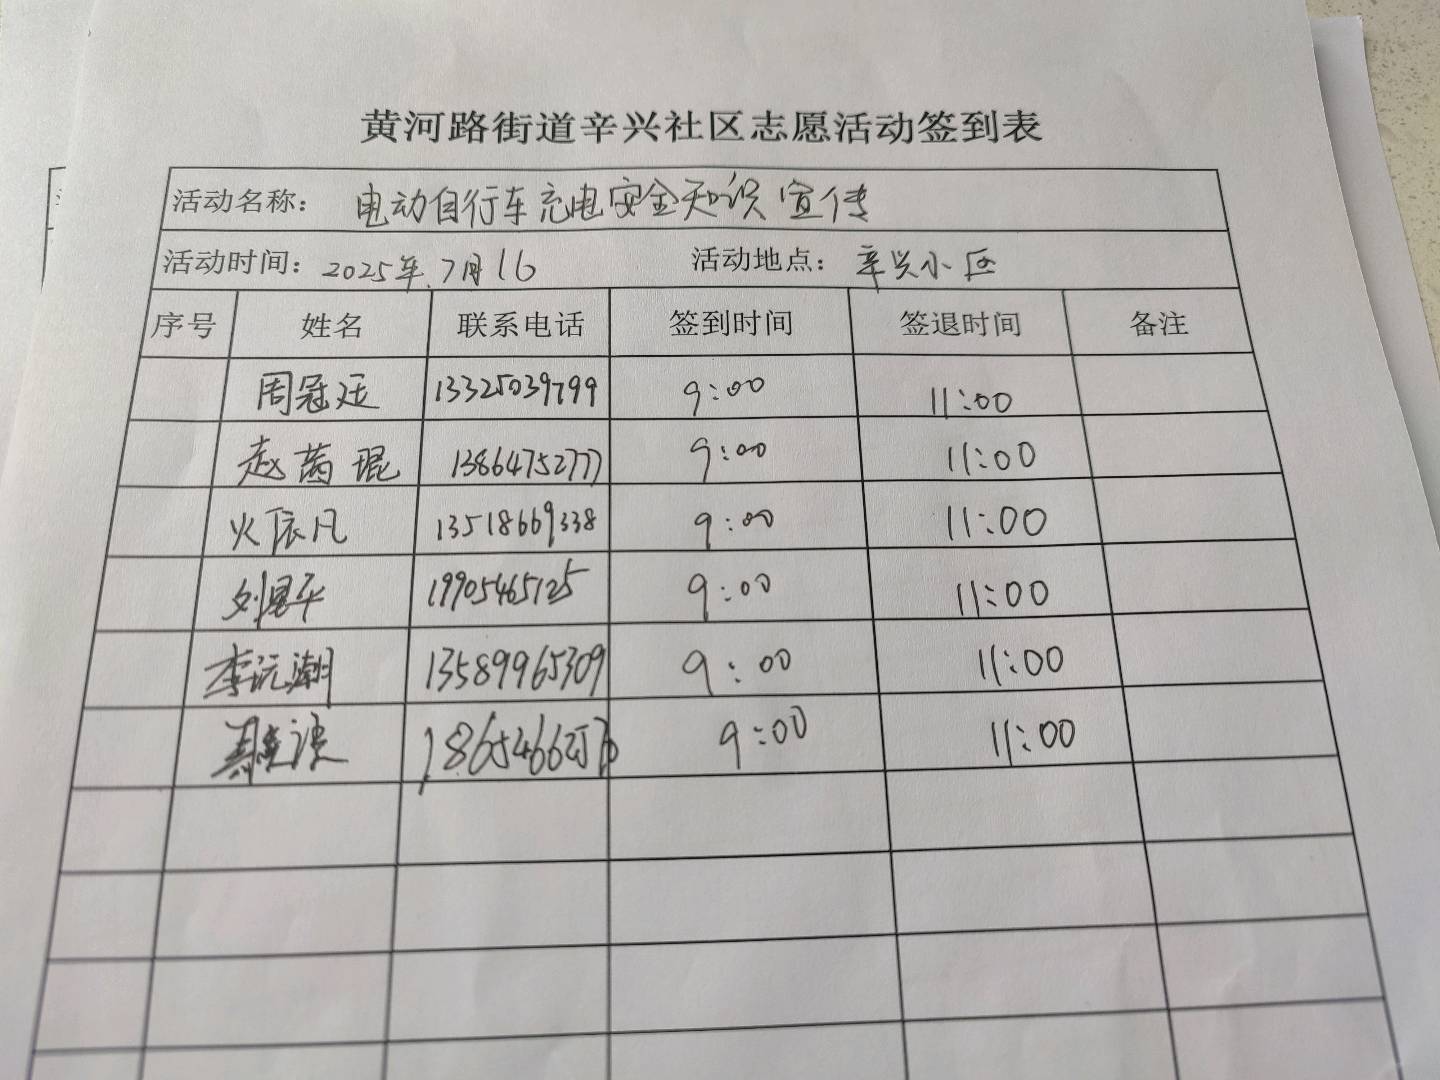 黄河路街道辛兴社区志愿活动签到表
活动名称： 电动自行车充电安全知识宣传
活动时间：2025年.7月16 活动地点：辛兴小区
序号 姓名 联系电话 签到时间 签退时间 备注
周冠廷 13325039799 9:00 11:00
赵茜琨 13864752777 9:00 11:00
火依凡 13518669338 9:00 11:00
刘昱平 19905465125 9:00 11:00
李沅潮 13589965309 9:00 11:00
9:00 11:00